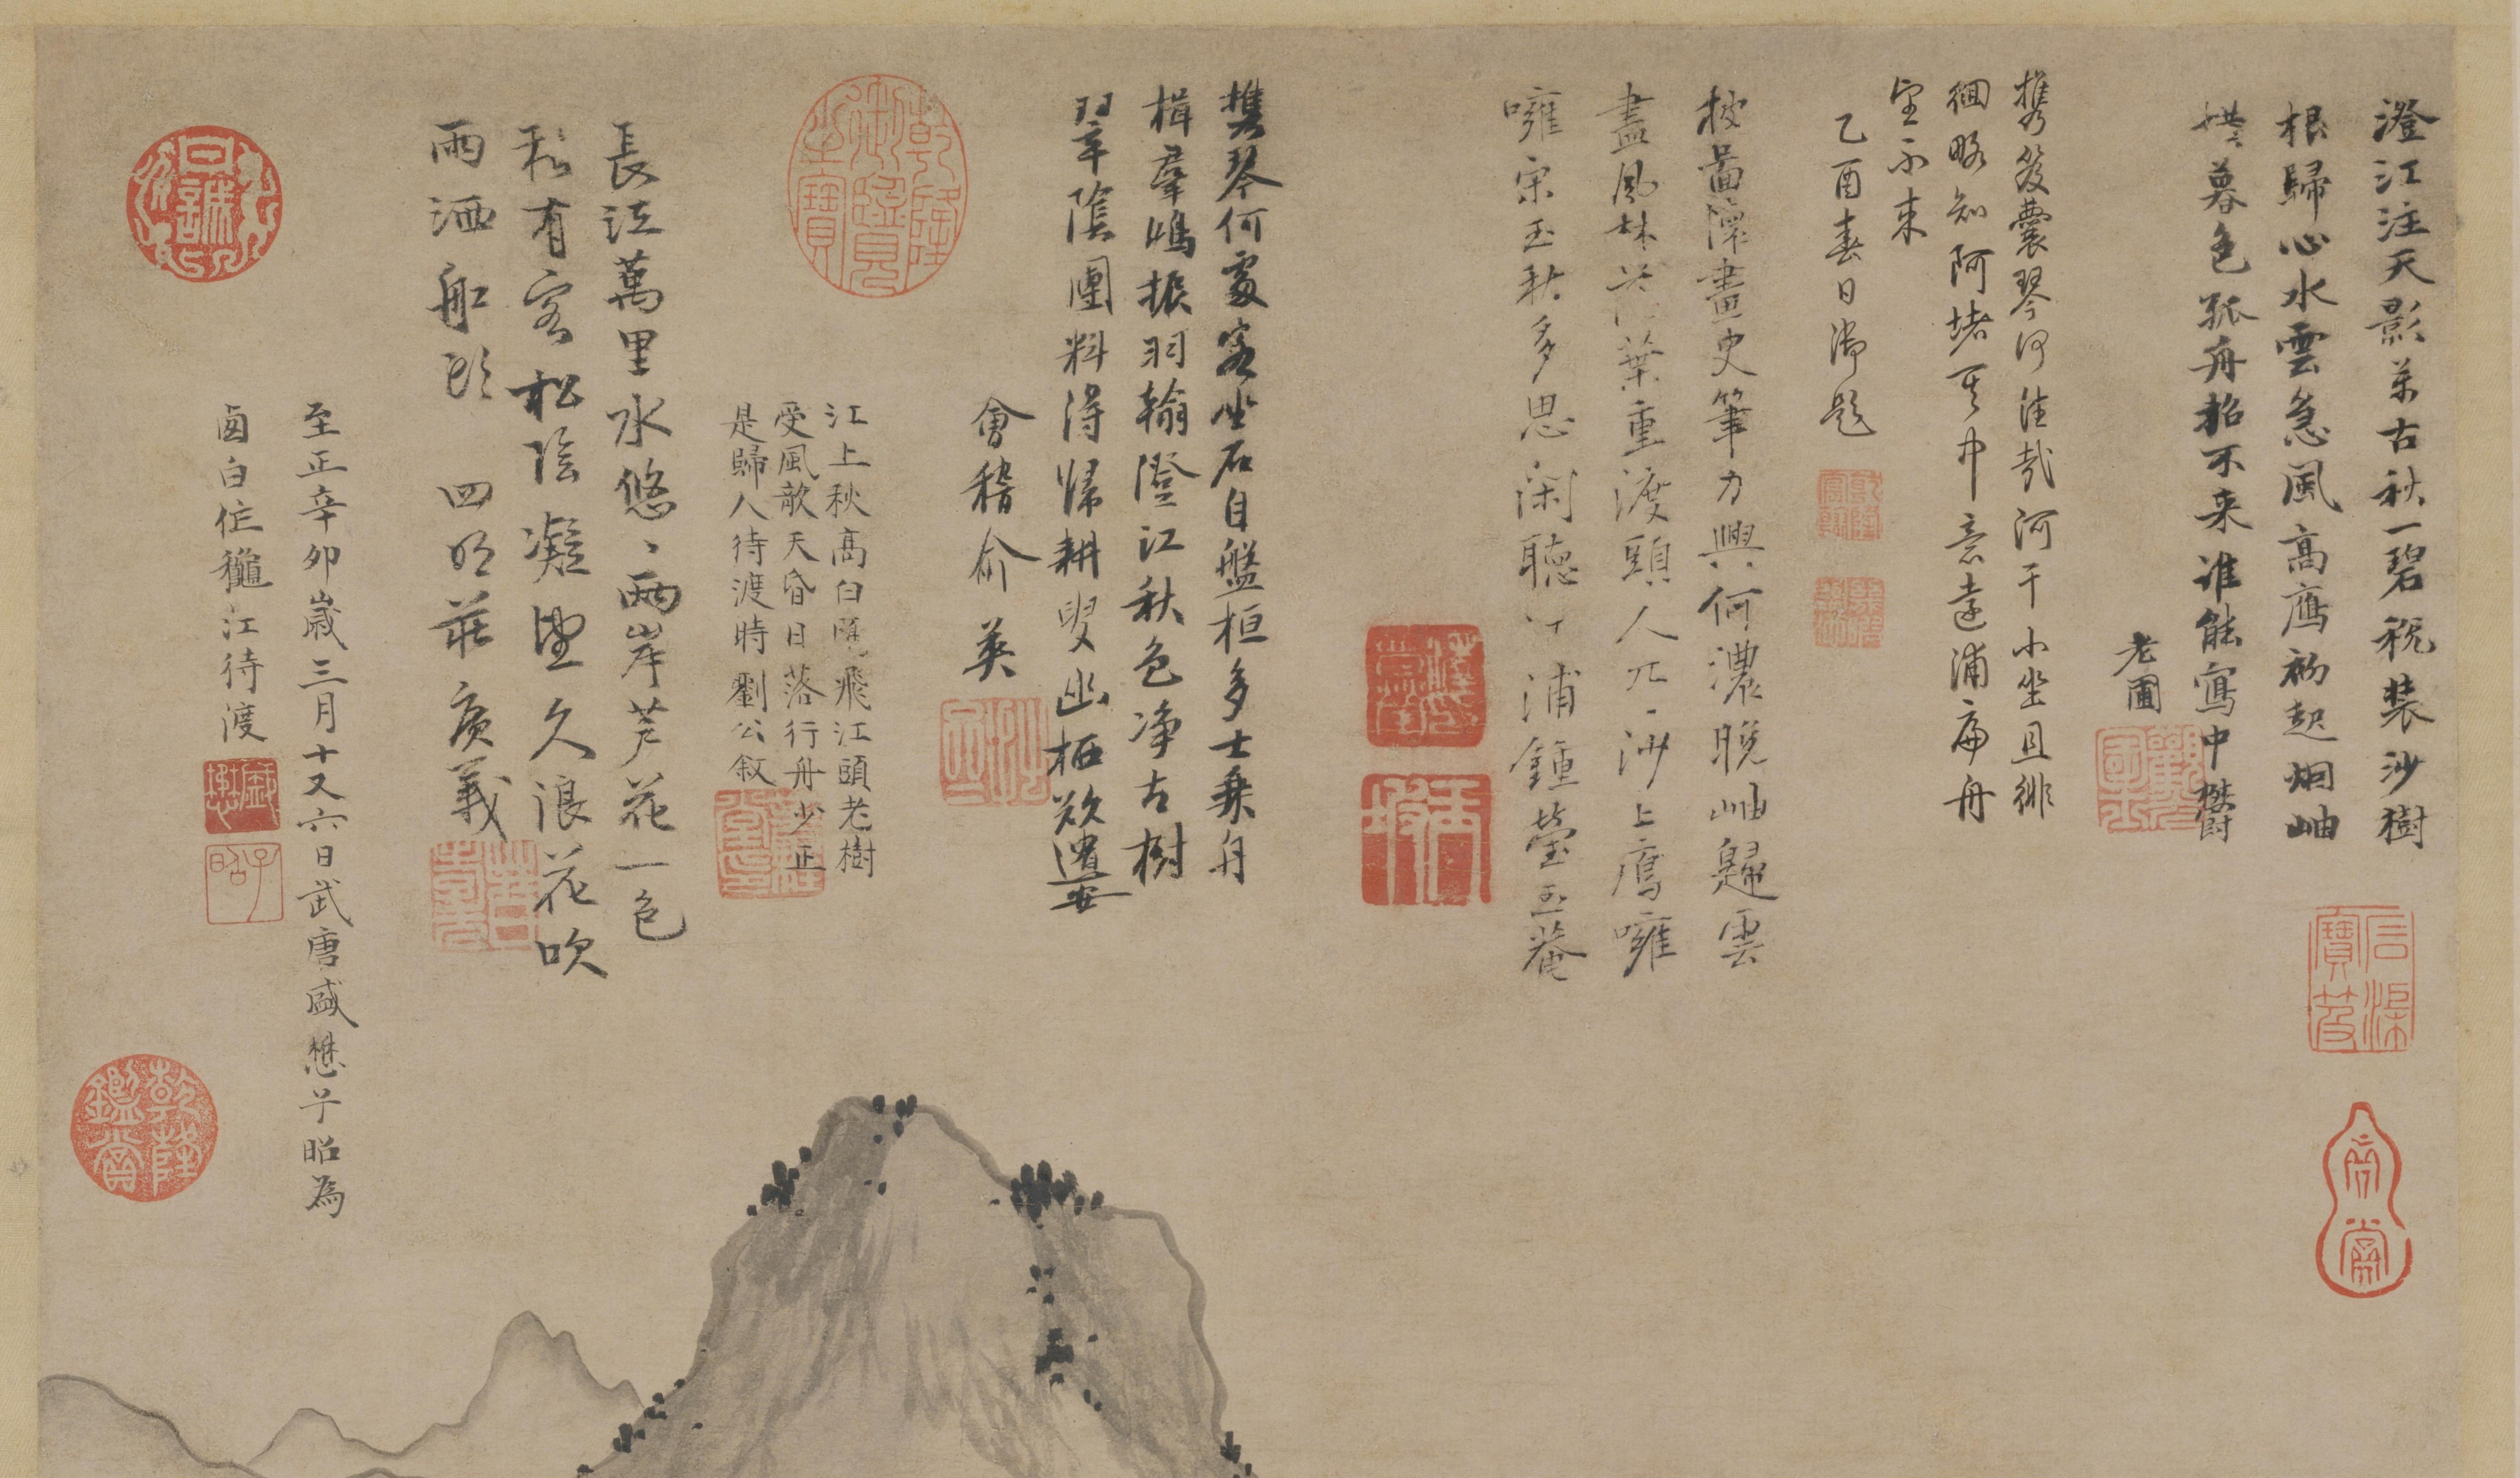 澄江注天影萬古秋一碧稅裝沙樹
根歸心水雲急風高鴈初起烟岫
暮色孤舟招不来谁能寫中鬱
老圃
携笈囊琴何往哉河干小坐且徘
徊略知阿堵其中意遠浦扁舟
望不来
乙酉春日御題
披圖懷畫史筆力興何濃晚岫歸雲
盡風林葉重渡頭人沙上鴈嗈
嗈宋玉秋多思闲聽浦鍾瑩玉菴
携琴何處客坐石自盤桓多士乗舟
楫羣鴻振羽翰澄江秋色净古樹
翠陰團料得帰耕叟幽栖欲遣安
會稽俞英
江上秋髙白鴈飛江頭老樹
受風欹天昏日落行舟少正
是歸人待渡時劉公叙
長江萬里水悠、兩岸芦花一色
秋有客松陰凝望久浪花吹
雨洒船頭四明莊
至正辛卯歲三月十又六日武唐盛懋子昭為
江待渡
乾隆御覽之寶
乾隆鑑賞
子昭